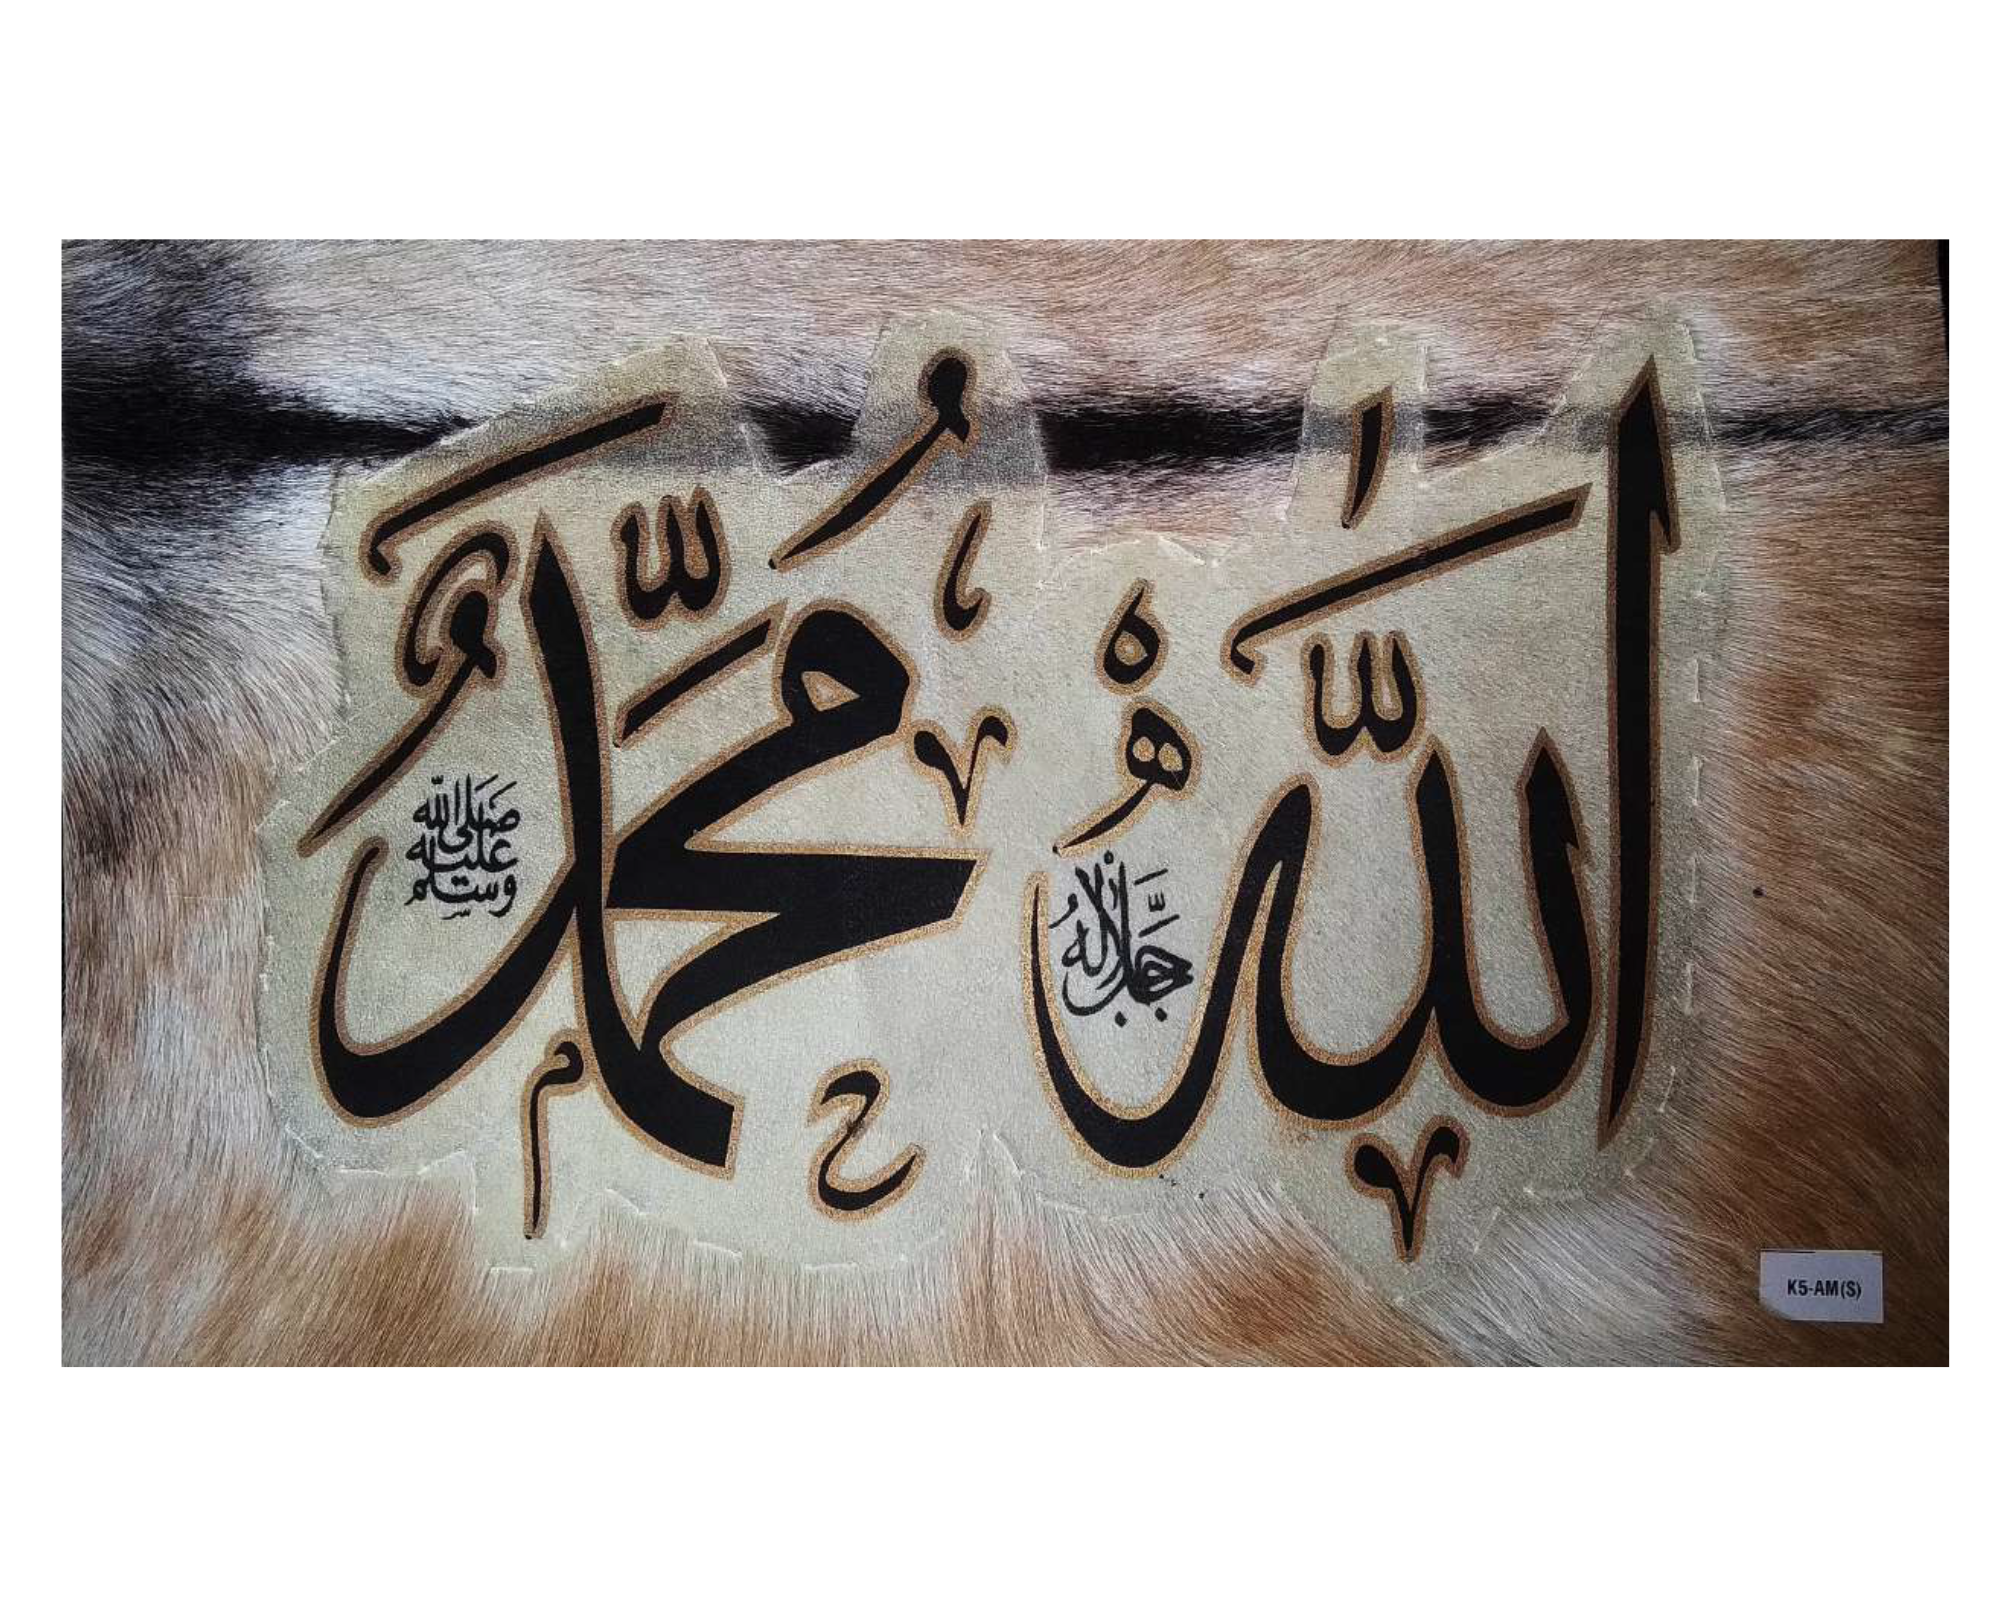 اللّٰهُ
جَلَّ جَلَالُهُ
مُحَمَّدٌ
صلى الله
عليه
وسلم
K5-AM(S)